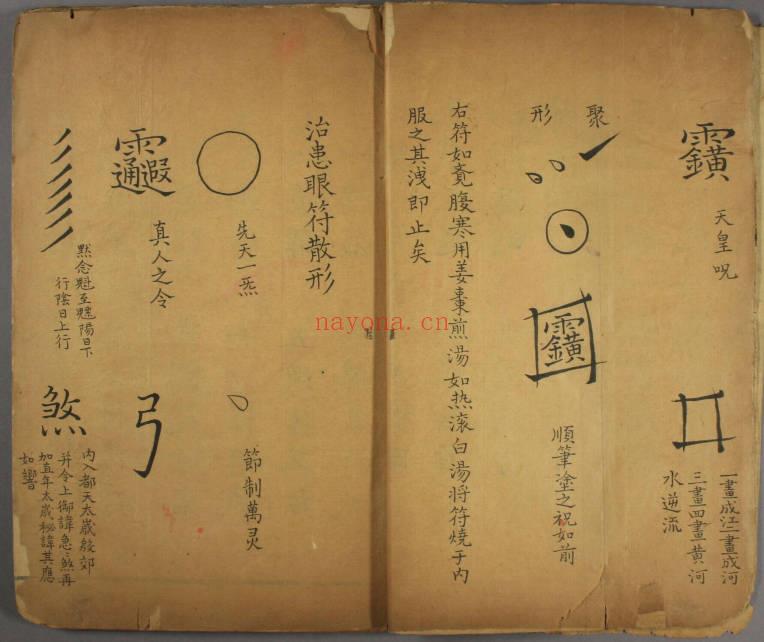 天皇咒
一畫成江二畫成河
三畫四畫黃河
水逆流
聚
形
順筆塗之祝如前
右符如竟腹寒用姜棗煎湯如热滚白湯將符燒于内
服之其洩即止矣
治患眼符散形
先天一炁
節制萬灵
真人之令
弓
默念魁至魓陽日下
行陰日上行
煞
内入都天太歲殷郊
并令上御諱急急煞再
加直年太歲秘諱其應
如響
nayona.cn